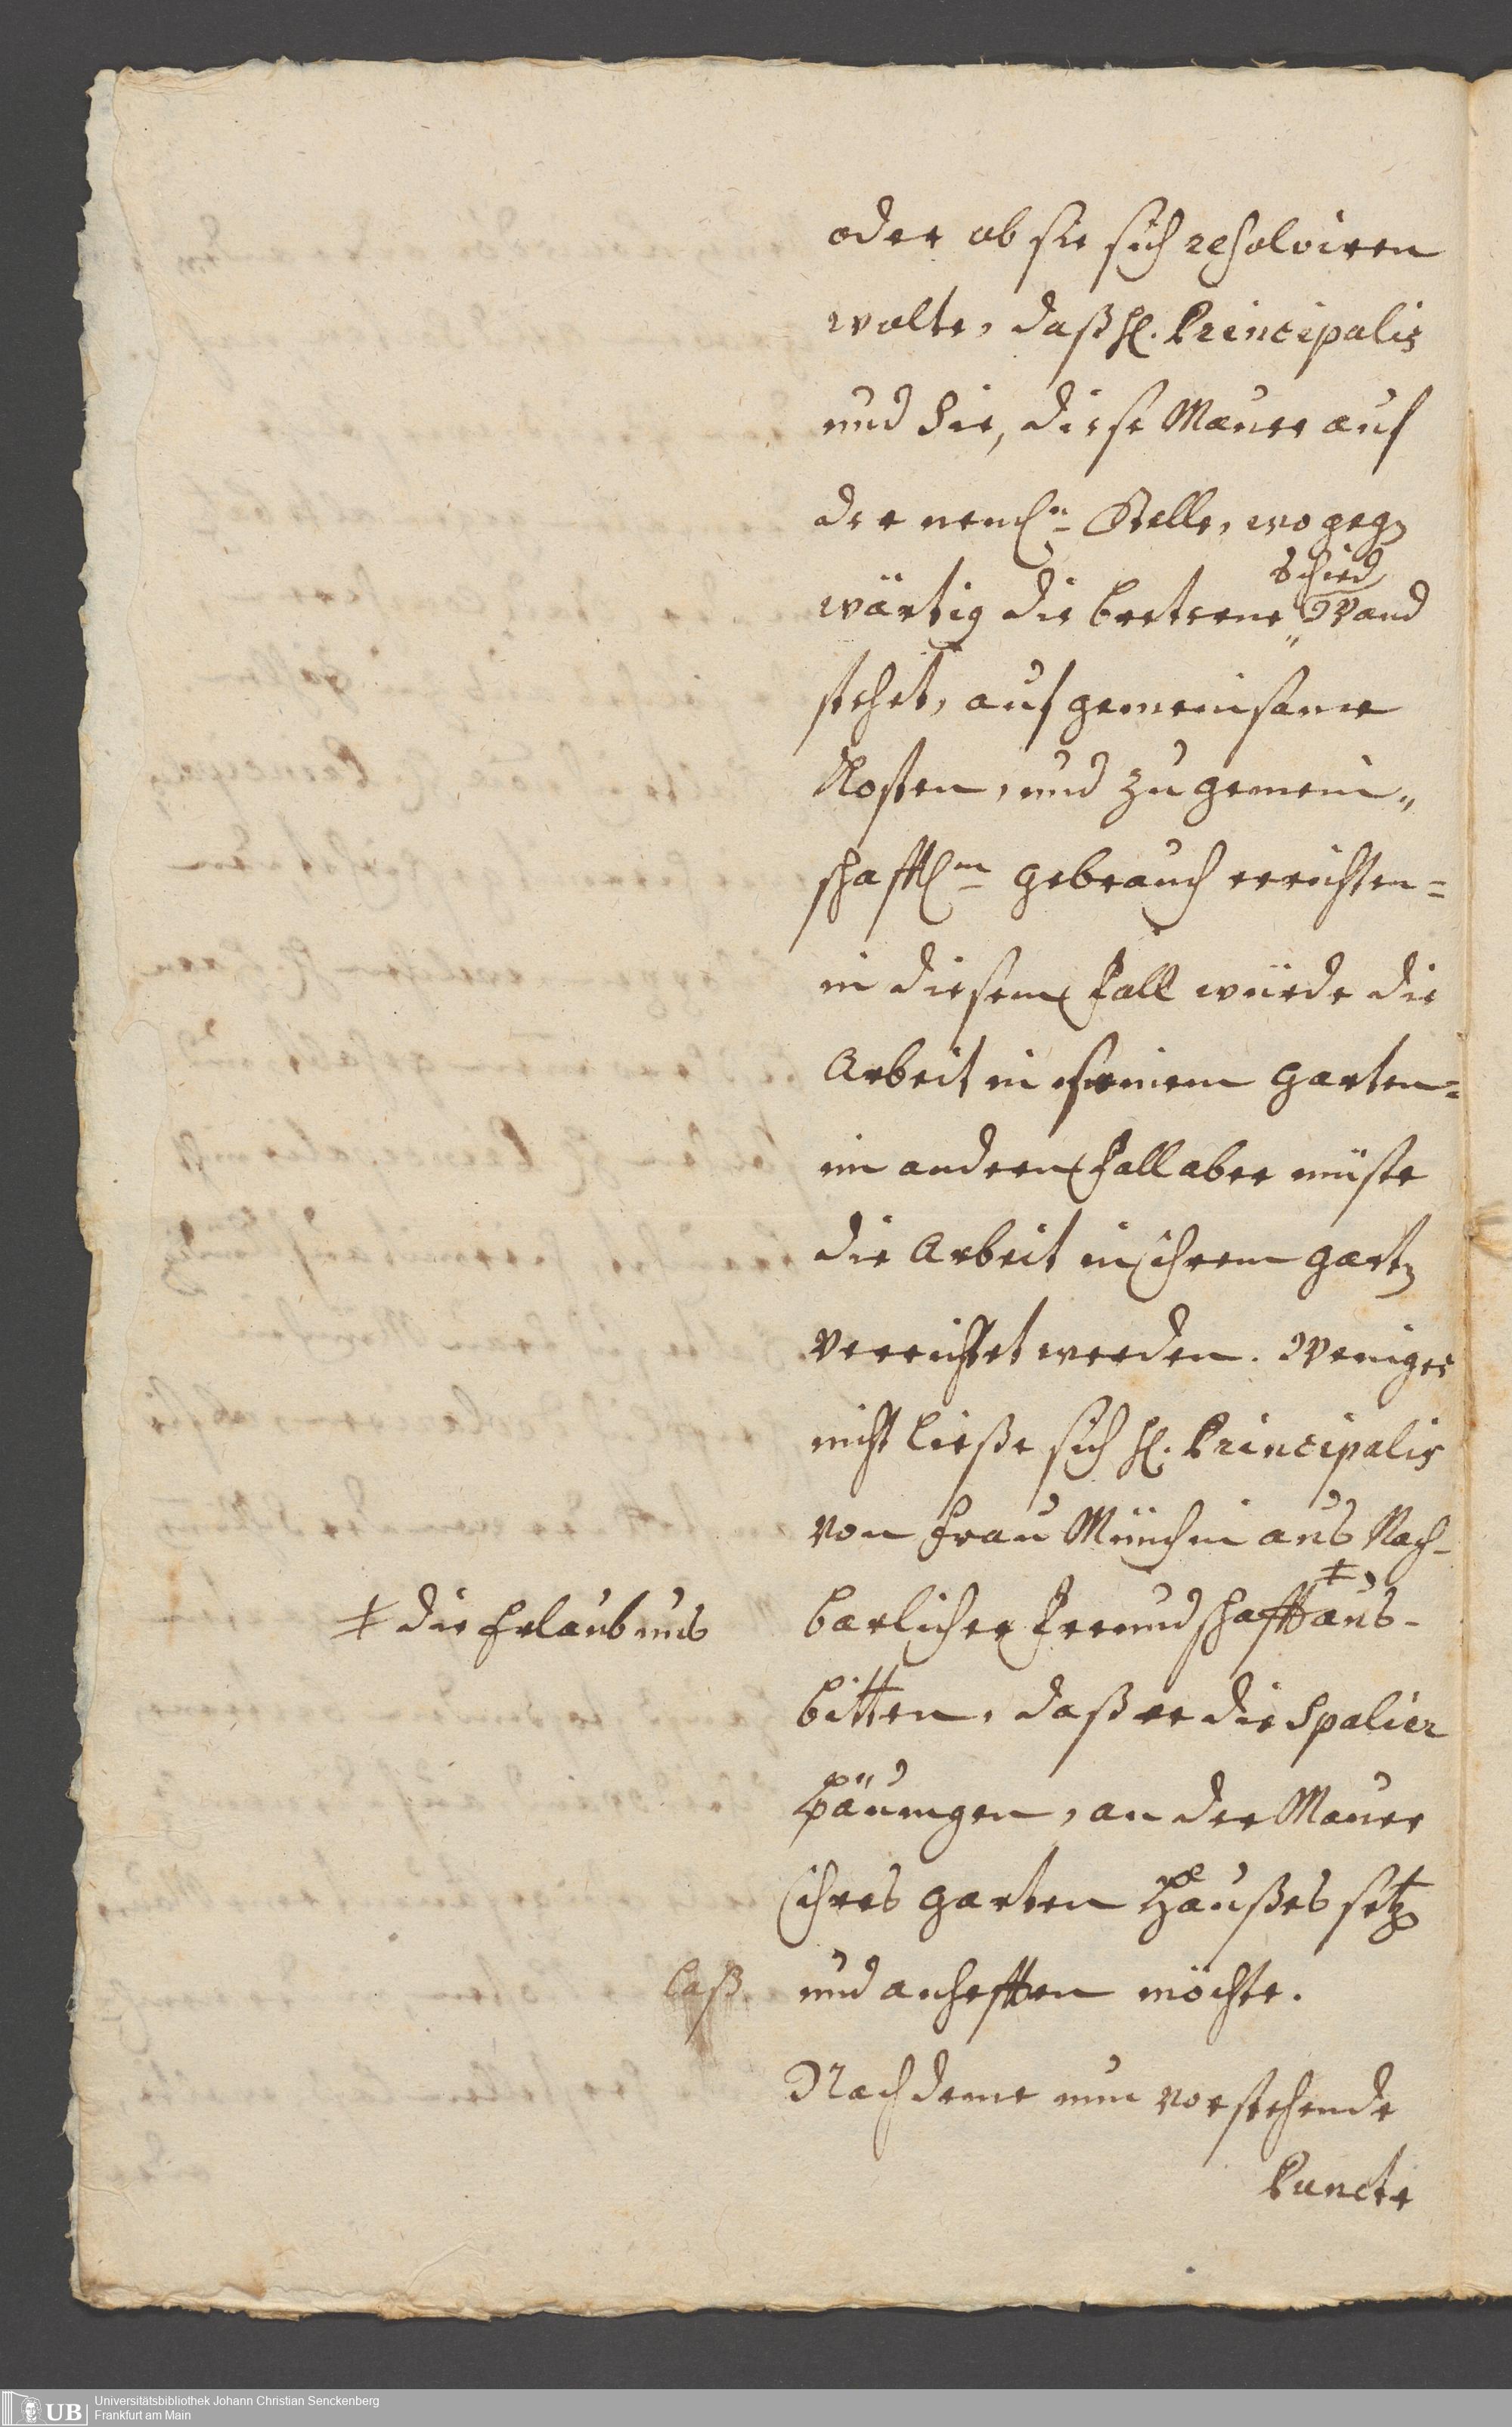 oder ob sie sich resolviren
wolte, daß H. Principalis
und Sie, diese Mauer auf
der neml.n Stelle, wo gegen
schied
wärtig die breterne Wand
stehet, auf gemeinsame
Kosten, und zu gemein„
schafftl.m gebrauch errichten=
in diesem Fall würde die
Arbeit in seinem Garten=
im andern Fall aber müste
die Arbeit in ihrem Garten
verrichtet werden. Weniger
nicht ließe sich H. Principalis
von Frau Münchin aus Nach-
‡ die Erlaubnus
barlicher Freundschafft ‡ aus-
bitten, daß er die Spalier
bäumgen, an der Mauer
ihres Garten Haußes setzen
laß und anhefften möchte.
Nachdeme nun vorstehende
Puncte
UB Universitätsbibliothek Johann Christian Senckenberg
Frankfurt am Main